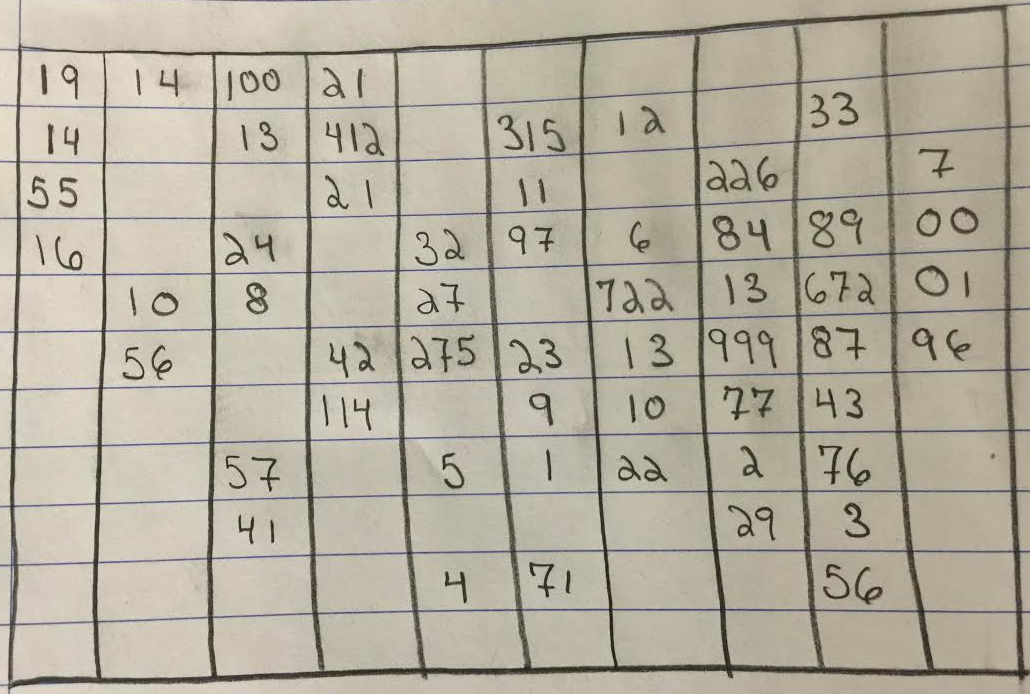 19 14 100 21
14 13 412 315 12 33
55 21 11 226 7
16 24 32 97 6 84 89 00
10 8 27 722 13 672 01
56 42 275 23 13 999 87 96
114 9 10 77 43
57 5 1 22 2 76
41 29 3
4 71 56